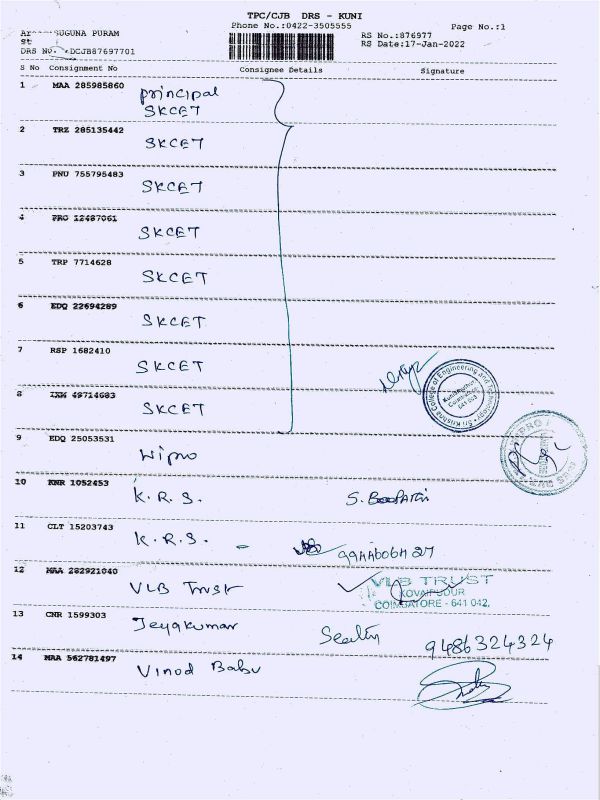 TPC/CJB DRS - KUNI
Phone No.:0422-3505555
Page No.:1
SUGUNA PURAM
RS No.:876977
RS Date:17-Jan-2022
DRS No. DCJB87697701
S No Consignment No Consignee Details Signature
1 MAA 285985860 principal
SKCET
2 TRZ 285135442 SKCET
3 PNU 755795483 SKCET
4 PRG 12487061 SKCET
5 TRP 7714628 SKCET
6 EDQ 22694289 SKCET
7 RSP 1682410 SKCET
8 IXM 49714683 SKCET
Sri Krishna College of Engineering and Technology
Kuniamuthur,
Coimbatore
641 008
9 EDQ 25053531 Wipro
10 KNR 1052453 K.R.S.
11 CLT 15203743 K.R.S. -
12 MAA 282921040 VLB Trust
VLB TRUST
KOVAIPUDUR
COIMBATORE - 641 042.
13 CNR 1599303 Jeyakumar 9486324324
14 MAA 562781497 Vinod Babu